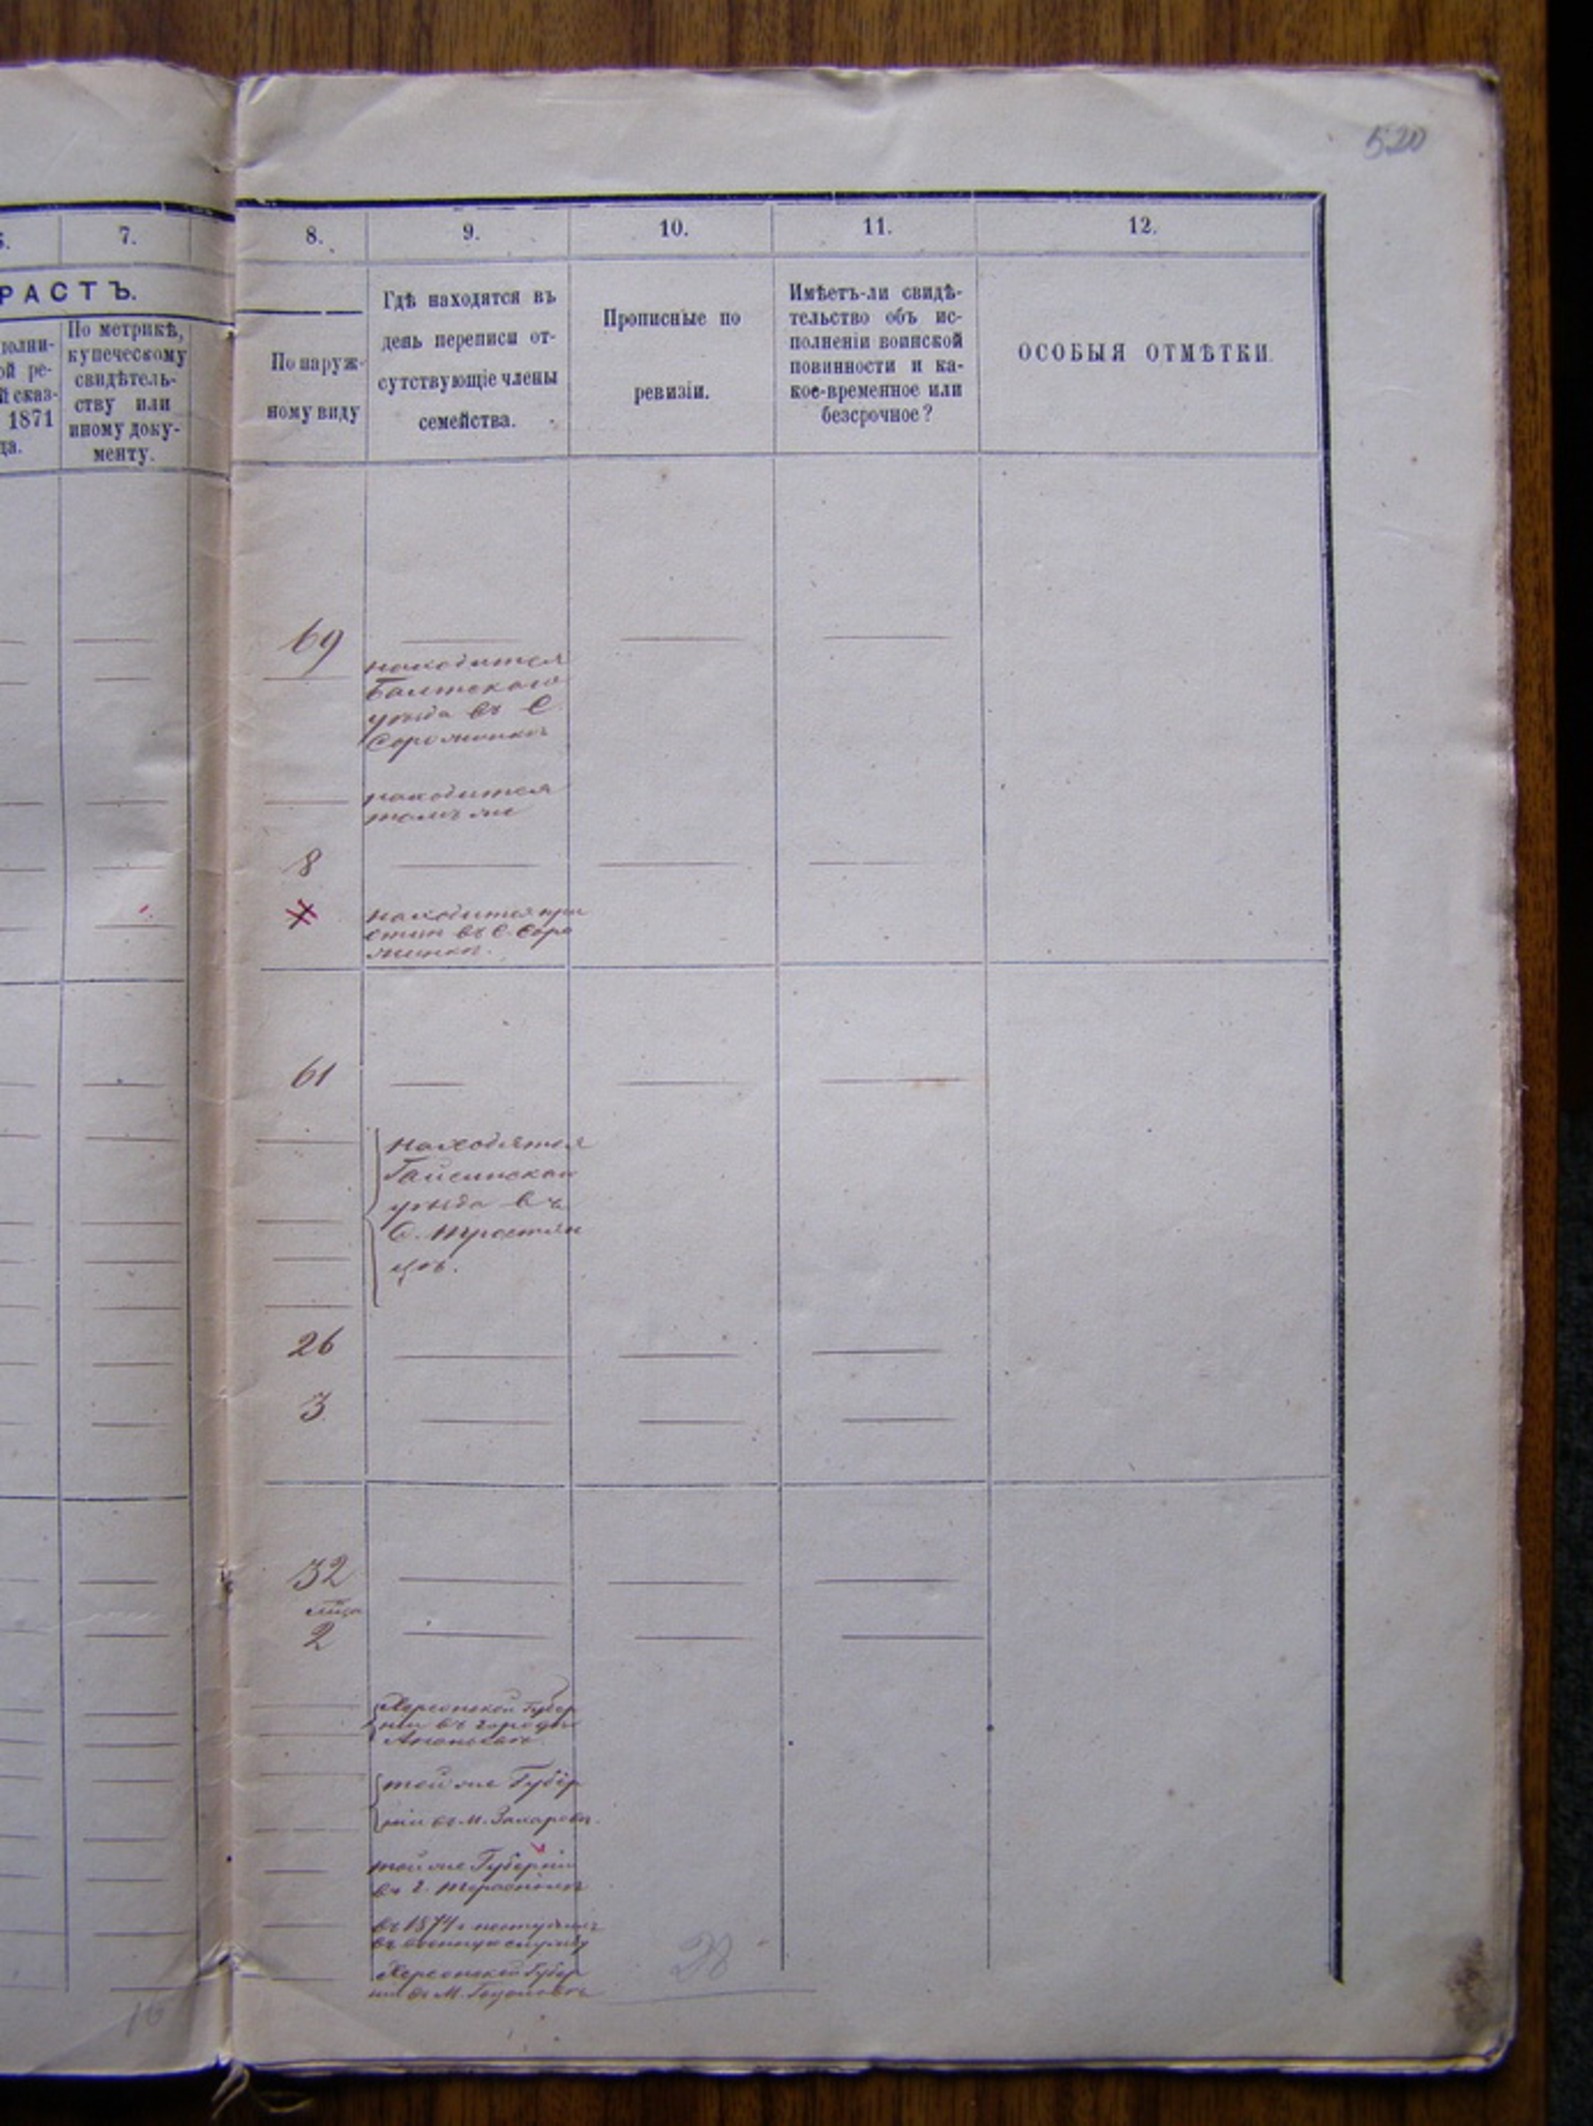 520
7. 8. 9. 10. 11. 12.
РАСТЪ.
полни-
ой ре-
й сказ-
1871
да.
По метрикѣ,
купеческому
свидѣтель-
ству или
иному доку-
менту.
По наруж-
ному виду
Гдѣ находятся въ
день переписи от-
сутствующіе члены
семейства.
Прописные по
ревизіи.
Имѣетъ-ли свидѣ-
тельство объ ис-
полненіи воинской
повинности и ка-
кое-временное или
безсрочное?
ОСОБЫЯ ОТМѢТКИ.
69
находится
Балтского
уѣзда въ С.
находится
тамъ же
8
находится при
въ С.
61
находятся
Гайсинскаго
уѣзда въ
С. Тростян
цѣ.
26
3
32
2
Херсонской Губер
ніи въ городѣ
Ананьевѣ
той же Губер
ніи въ м.
той же Губерніи
въ г.
въ 1874 г поступилъ
въ военную службу
Херсонской Губер
ніи въ М.
28
16